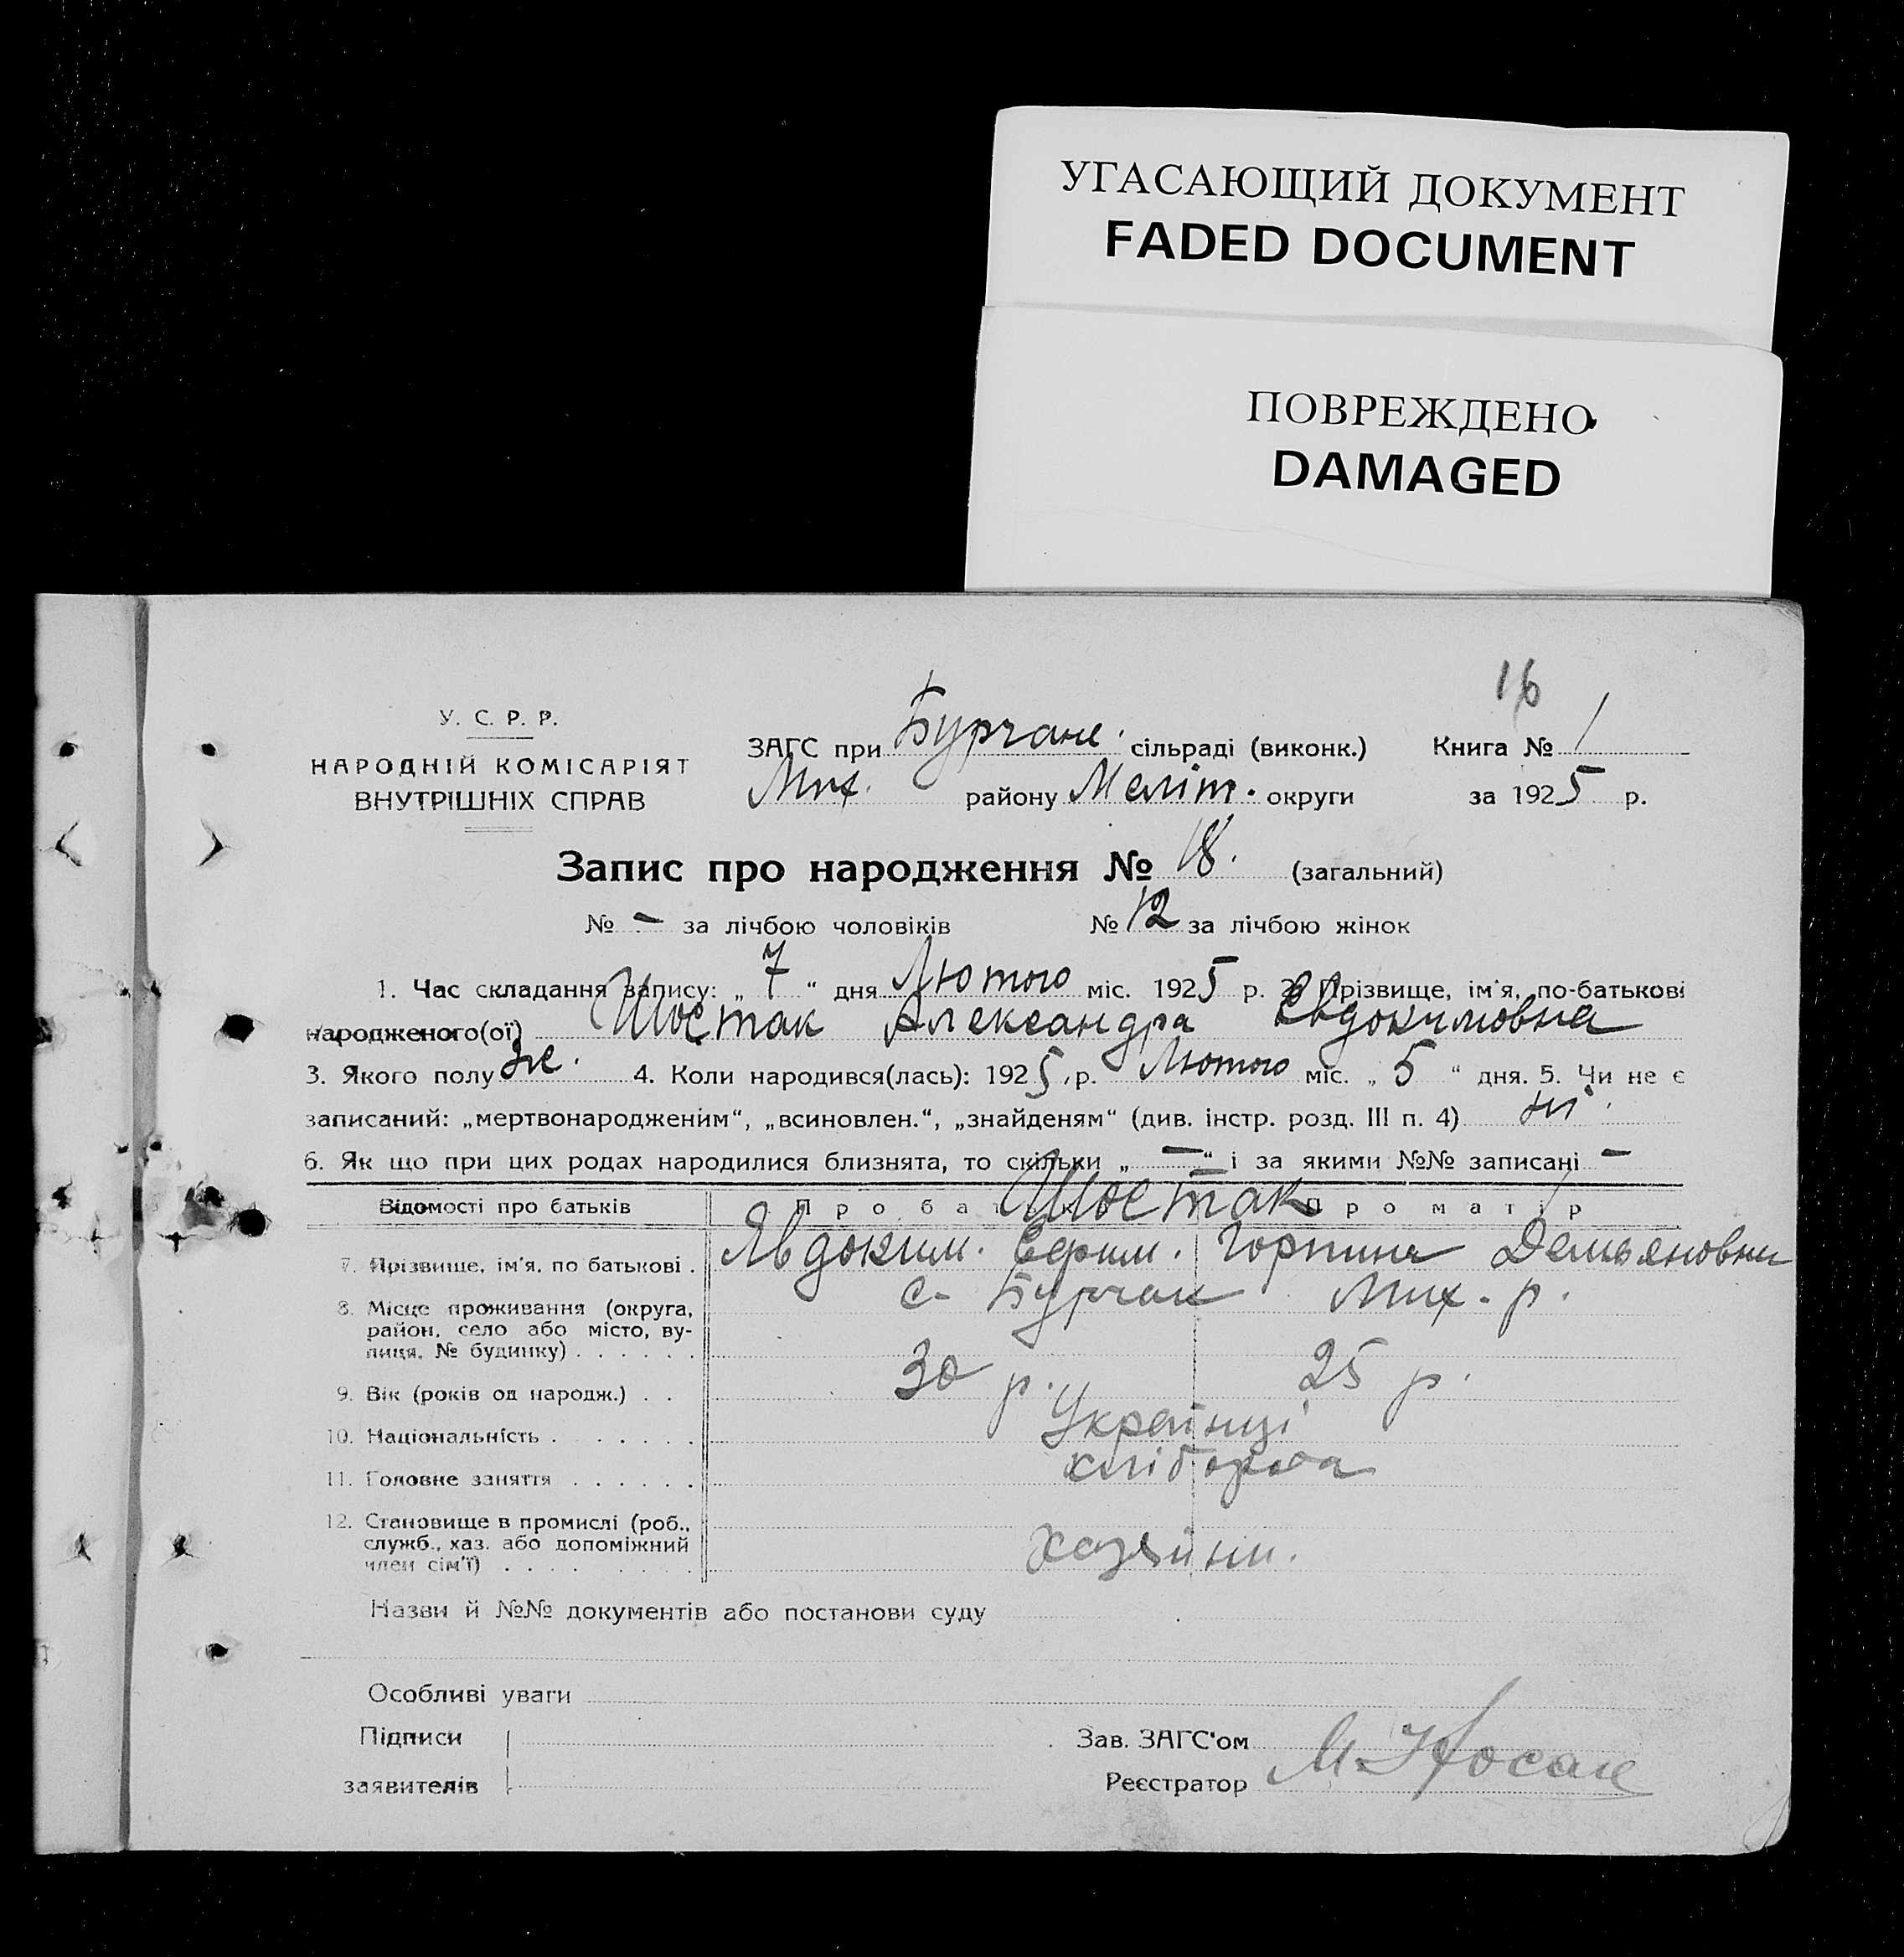 УГАСАЮЩИЙ ДОКУМЕНТ
FADED DOCUMENT
ПОВРЕЖДЕНО
DAMAGED
16
У. С. Р. Р.
НАРОДНІЙ КОМІСАРІЯТ
ВНУТРІШНІХ СПРАВ
ЗАГС при Бурчане. сільраді (виконк.) Книга № 1
Мих. району Меліт. округи за 1925 р.
Запис про народження № 18. (загальний)
№ - за лічбою чоловіків № 12 за лічбою жінок
1. Час складання запису: „ 7 “ дня Лютого міс. 1925 р. 2. Прізвище, ім'я, по-батькові
народженого(ої) Шостак Александра Евдокимовна
3. Якого полу же. 4. Коли народився(лась): 1925 р. Лютого міс. „ 5 “ дня. 5. Чи не є
записаний: „мертвонародженим“, „всиновлен.“, „знайденям“ (див. інстр. розд. III п. 4) ні
6. Як що при цих родах народилися близнята, то скільки „ — “ і за якими №№ записані —
Відомості про батьків Про батька Шостак Про матір
7. Прізвище, ім'я, по батькові . Явдоким. Ефим. Горпина Демьяновна
8. Місце проживання (округа,
район, село або місто, ву-
лиця, № будинку) . . . . . . с- Бурчак Мих. р.
9. Вік (років од народж.) . . 30 р. 25 р.
10. Національність . . . . . . Українці
11. Головне заняття . . . . . . хлібороба
12. Становище в промислі (роб.,
служб., хаз. або допоміжний
член сім'ї) . . . . . . . . Хазяіни.
Назви й №№ документів або постанови суду
Особливі уваги
Підписи
заявителів
Зав. ЗАГС'ом
Реєстратор